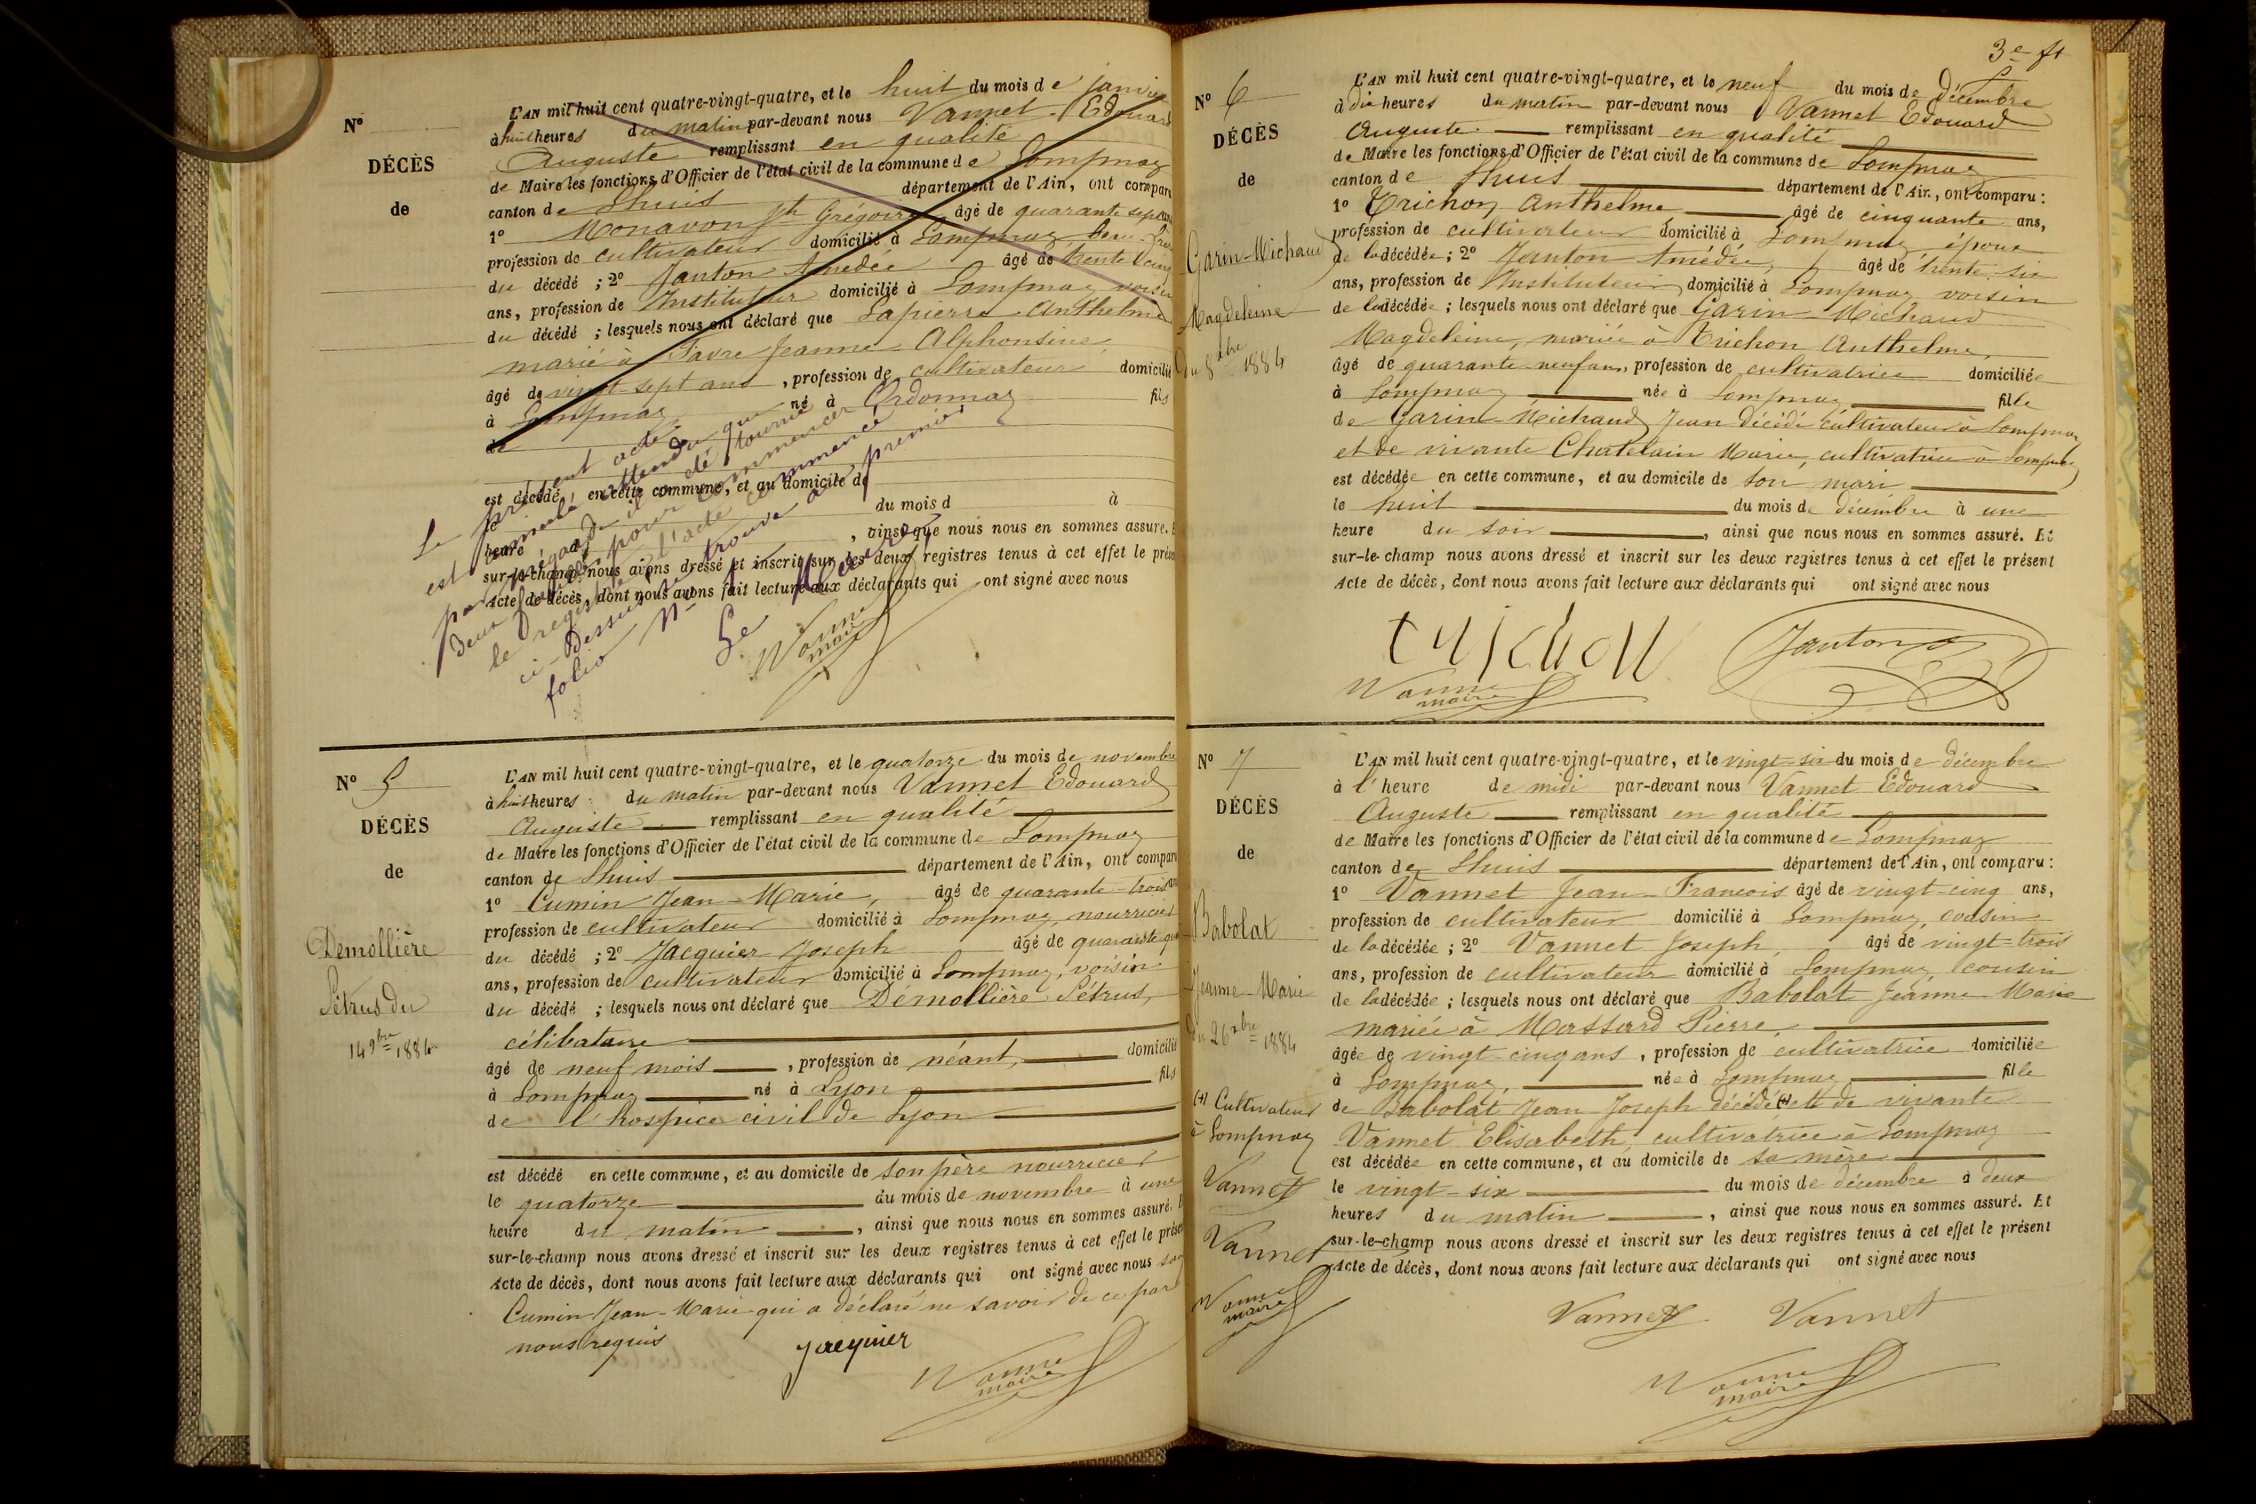 Nº
DÉCÈS
de
L'AN mil huit cent quatre-vingt-quatre, et le huit du mois de janvier
à huit heures du matin par-devant nous Vannet Edouard
Auguste remplissant en qualité
de Maire les fonctions d'Officier de l'état civil de la commune de Lompnaz
canton de Lhuis département de l'Ain, ont comparu
1º Monavon Jh Grégoire âgé de quarante sept ans
profession de cultivateur domicilié à Lompnaz beau-frère
du décédé ; 2º Janton Amédée âgé de trente cinq
ans, profession de Instituteur domicilié à Lompnaz voisin
du décédé ; lesquels nous ont déclaré que Lapierre Anthelme
marié à Favre Jeanne Alphonsine
âgé de vingt-sept ans, profession de cultivateur domicilié
à Lompnaz né à Ordonnaz fils
de
est décédé en cette commune, et au domicile de
le du mois d à
heure d , ainsi que nous nous en sommes assuré. Et
sur-le-champ nous avons dressé et inscrit sur les deux registres tenus à cet effet le présent
Acte de décès, dont nous avons fait lecture aux déclarants qui ont signé avec nous
Le présent acte
est annulé attendu que
par mégarde il a été tourné
deux feuilles pour commencer
le registre, l'acte commencé
ci-dessus se trouve au premier
folio Nº 1
Le Maire
Vanne
maire
Nº 5
DÉCÈS
de
Démollière
Pétrus du
14 9bre 1884
L'AN mil huit cent quatre-vingt-quatre, et le quatorze du mois de novembre
à huit heures du matin par-devant nous Vannet Edouard
Auguste remplissant en qualité
de Maire les fonctions d'Officier de l'état civil de la commune de Lompnaz
canton de Lhuis département de l'Ain, ont comparu
1º Cumin Jean-Marie, âgé de quarante-trois ans
profession de cultivateur domicilié à Lompnaz, nourricier
du décédé ; 2º Jacquier Joseph âgé de quarante
ans, profession de cultivateur domicilié à Lompnaz, voisin
du décédé ; lesquels nous ont déclaré que Démollière Pétrus,
célibataire
âgé de neuf mois, profession de néant, domicilié
à Lompnaz né à Lyon fils
de l'hospice civil de Lyon
est décédé en cette commune, et au domicile de son père nourricier
le quatorze du mois de novembre à une
heure du matin, ainsi que nous nous en sommes assuré. Et
sur-le-champ nous avons dressé et inscrit sur les deux registres tenus à cet effet le présent
Acte de décès, dont nous avons fait lecture aux déclarants qui ont signé avec nous sauf
Cumin Jean-Marie qui a déclaré ne savoir de ce par
nous requis
Jacquier
Vanne
maire
3e ft
Nº 6
DÉCÈS
de
Garin-Michaud
Magdeleine
du 8 xbre 1884
L'AN mil huit cent quatre-vingt-quatre, et le neuf du mois de décembre
à dix heures du matin par-devant nous Vannet Edouard
Auguste remplissant en qualité
de Maire les fonctions d'Officier de l'état civil de la commune de Lompnaz
canton de Lhuis département de l'Ain, ont comparu :
1º Trichon Anthelme âgé de cinquante ans,
profession de cultivateur domicilié à Lompnaz époux
de la décédée ; 2º Janton Amédée, âgé de trente-six
ans, profession de Instituteur domicilié à Lompnaz voisin
de la décédée ; lesquels nous ont déclaré que Garin-Michaud
Magdeleine, mariée à Trichon Anthelme,
âgé de quarante-neuf ans, profession de cultivatrice domiciliée
à Lompnaz née à Lompnaz fille
de Garin-Michaud Jean décédé cultivateur à Lompnaz
et de vivante Chatelain Marie, cultivatrice à Lompnaz
est décédée en cette commune, et au domicile de son mari
le huit du mois de décembre à une
heure du soir, ainsi que nous nous en sommes assuré. Et
sur-le-champ nous avons dressé et inscrit sur les deux registres tenus à cet effet le présent
Acte de décès, dont nous avons fait lecture aux déclarants qui ont signé avec nous
trichon Janton
Vanne
maire
Nº 7
DÉCÈS
de
Babolat
Jeanne-Marie
du 26 xbre 1884
(+) Cultivateur
à Lompnaz
Vannet
Vannet
Vanne
maire
L'AN mil huit cent quatre-vingt-quatre, et le vingt-six du mois de décembre
à l'heure de midi par-devant nous Vannet Edouard
Auguste remplissant en qualité
de Maire les fonctions d'Officier de l'état civil de la commune de Lompnaz
canton de Lhuis département de l'Ain, ont comparu :
1º Vannet Jean-François âgé de vingt-cinq ans,
profession de cultivateur domicilié à Lompnaz, cousin
de la décédée ; 2º Vannet Joseph, âgé de vingt-trois
ans, profession de cultivateur domicilié à Lompnaz, cousin
de la décédée ; lesquels nous ont déclaré que Babolat Jeanne-Marie
mariée à Massard Pierre,
âgée de vingt-cinq ans, profession de cultivatrice domiciliée
à Lompnaz, née à Lompnaz fille
de Babolat Jean-Joseph décédé (+) et de vivante
Vannet Elisabeth, cultivatrice à Lompnaz
est décédée en cette commune, et au domicile de sa mère
le vingt-six du mois de décembre à deux
heures du matin, ainsi que nous nous en sommes assuré. Et
sur-le-champ nous avons dressé et inscrit sur les deux registres tenus à cet effet le présent
Acte de décès, dont nous avons fait lecture aux déclarants qui ont signé avec nous
Vannet Vannet
Vanne
maire